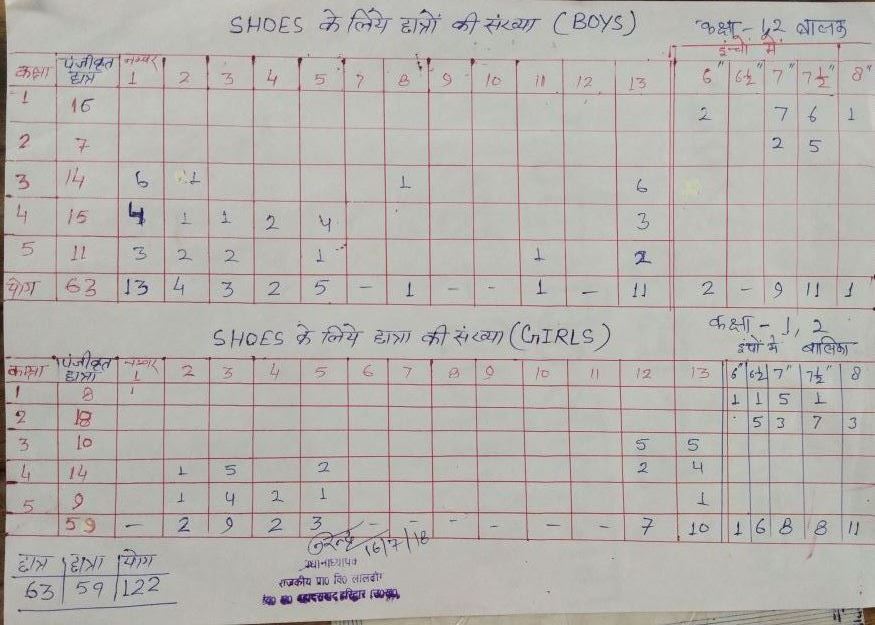 SHOES के लिये छात्रों की संख्या (BOYS)
कक्षा - 1,2 बालक
इंचो में
कक्षा पंजीकृत छात्र नम्बर 1 2 3 4 5 7 8 9 10 11 12 13 6" 6½" 7" 7½" 8"
1 16 2 7 6 1
2 7 2 5
3 14 6 1 1 6
4 15 4 1 1 2 4 3
5 11 3 2 2 1 1 2
योग 63 13 4 3 2 5 - 1 - - 1 - 11 2 - 9 11 1
SHOES के लिये छात्रा की संख्या (GIRLS)
कक्षा - 1, 2
इंचो में बालिका
कक्षा पंजीकृत छात्रा नम्बर 1 2 3 4 5 6 7 8 9 10 11 12 13 6" 6½ 7" 7½" 8
1 8 1 1 5 1
2 18 5 3 7 3
3 10 5 5
4 14 1 5 2 2 4
5 9 1 4 2 1 1
59 - 2 9 2 3 - - - - - - 7 10 1 6 8 8 11
16/7/18
प्रधानाध्यापक
राजकीय प्रा० वि० लालढांग
छात्र छात्रा योग
63 59 122